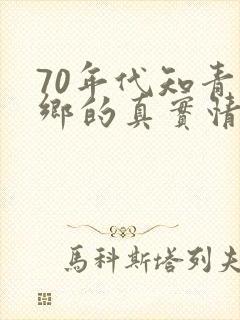 70年代知青
鄉的真實情
馬科斯塔列夫